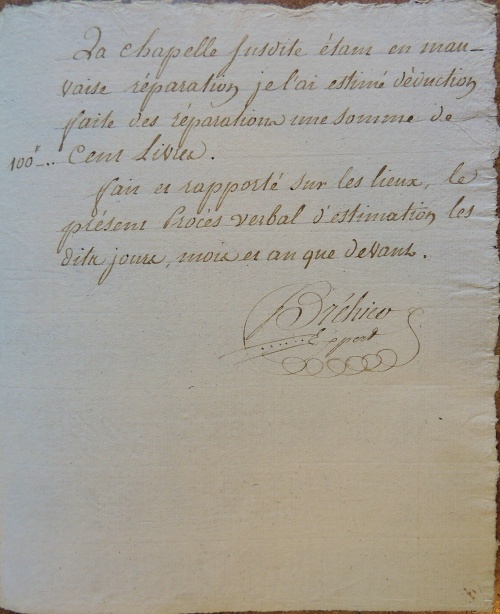 La chapelle susdite étant en mau-
vaise réparation, je l'ai estimé déduction
faite des réparations une somme de
100# ... Cent Livres.
fait et rapporté sur les lieux, le
présent Procès verbal d'estimation les
dits jours, mois et an que devant.
Bréhier
Expert